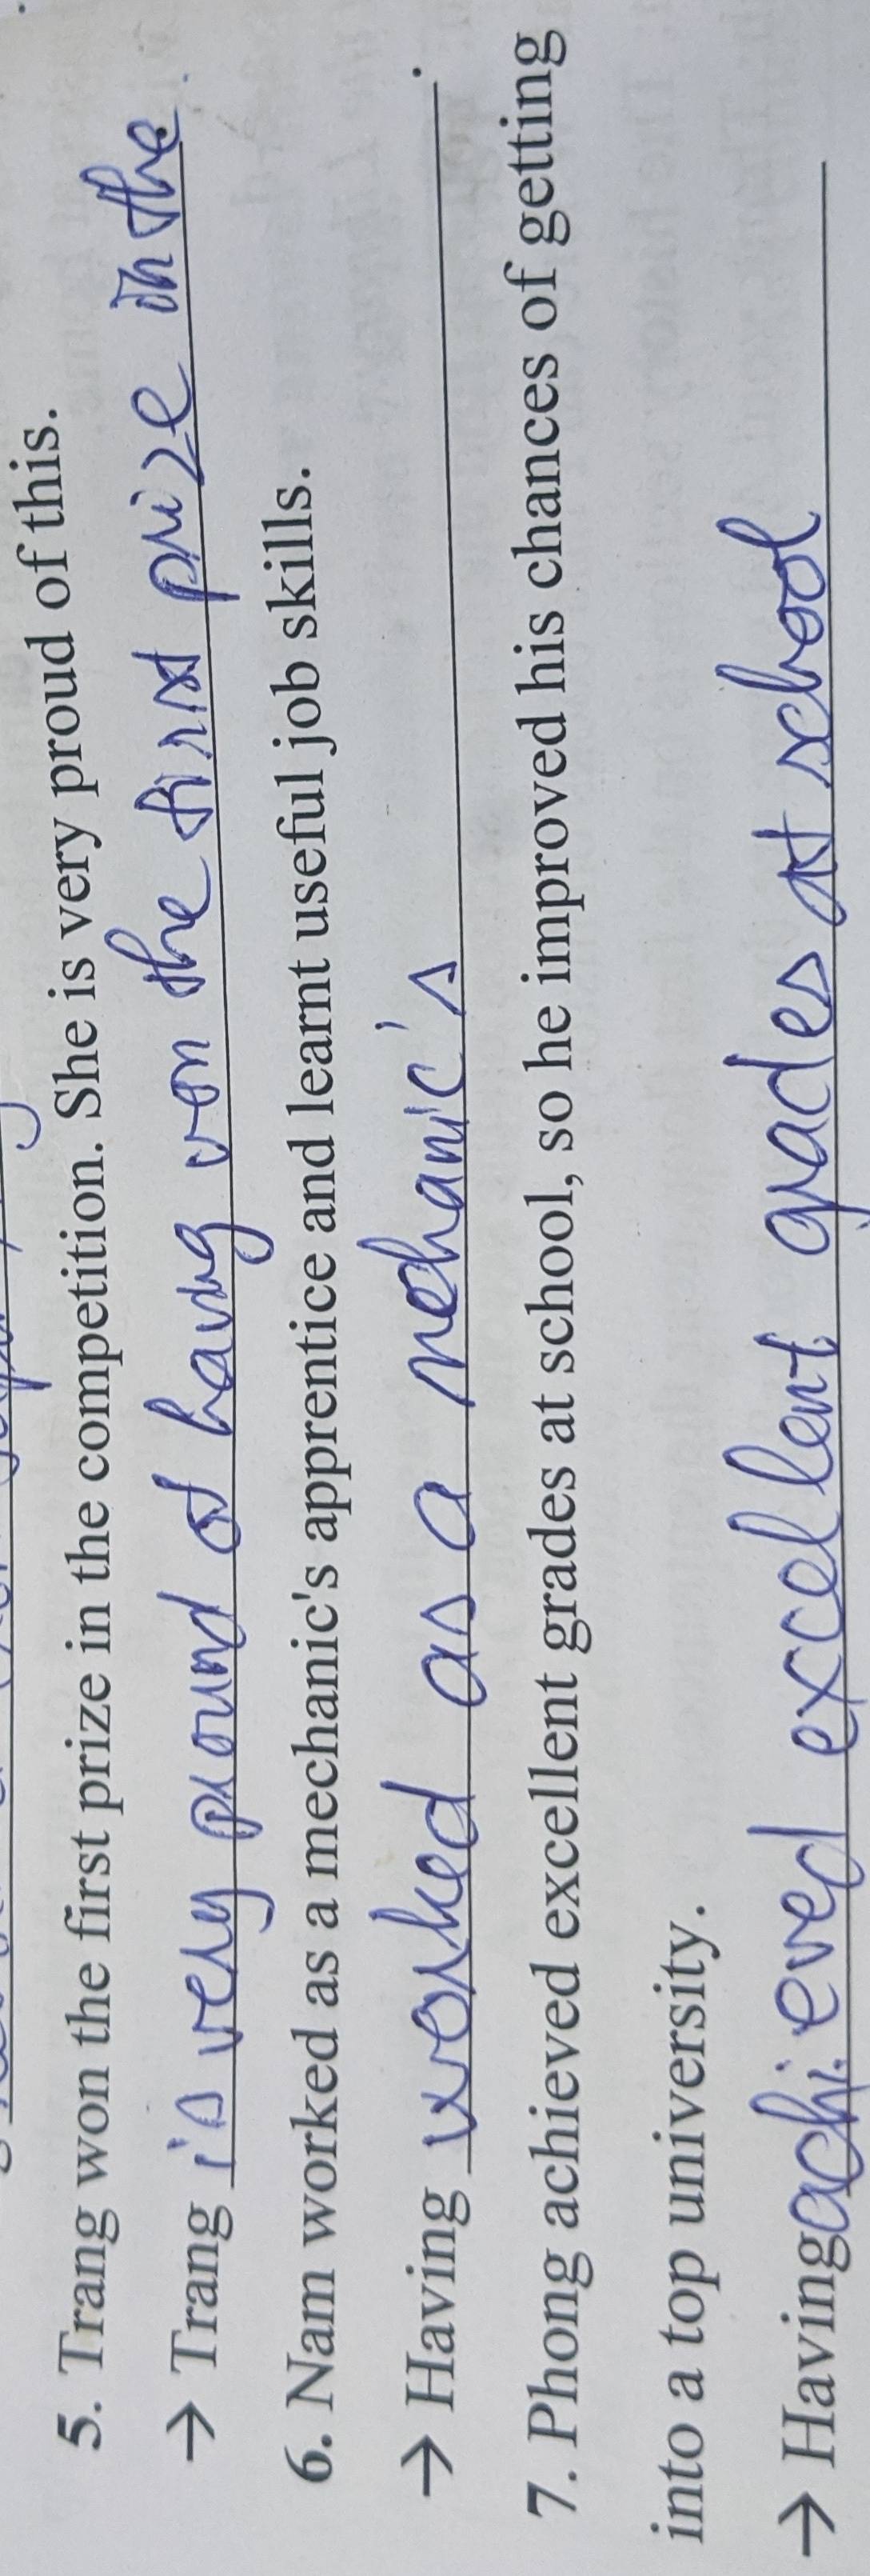 5. Trang won the first prize in the competition. She is very proud of this.
→ Trang is very pround of having von the first prize in the.
6. Nam worked as a mechanic's apprentice and learnt useful job skills.
→ Having worked as a mechanic's .
7. Phong achieved excellent grades at school, so he improved his chances of getting
into a top university.
→ Having achieved excellent grades at school